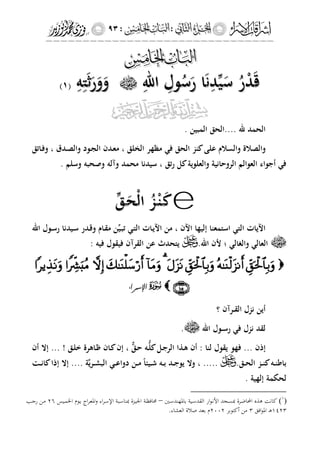 إشراقات الإسراء : الجزء الثاني : الباب الخامس : ٩٣ فوزي محمد أبوزيد
الباب الخامس
قَدْرُ سَيِّدِنَا رَسُولِ اللهِ ﷺ وَوَرَثَتِهِ (١)
الحمد لله ....الحق المبين .
والصلاة والسلام على كنز الحق في مظهر الخلق ، معدن الجود والصدق ، وفاتق
في أجواء العوالم الروحانية والعلوية كل رتق ، سيدنا محمد وآله وصحبه وسلم .
كَنْزُ الْحَقِّ
الآيات التي استمعنا إليها الآن ، من الآيات التي تبيّن مقام وقدر سيدنا رسول الله
ﷺ العالي والغالي ؛ لأن الله.ﷻ يتحدث عن القرآن فيقول فيه :
﴿ وَبِٱلْحَقِّ أَنزَلْنَـٰهُ وَبِٱلْحَقِّ نَزَلَ ۗ وَمَآ أَرْسَلْنَـٰكَ إِلَّا مُبَشِّرًا وَنَذِيرًا
١٠٥ ﴾ سورة الإسراء
أين نزل القرآن ؟
لقد نزل في رسول الله ﷺ.
إذن ... فهو يقول لنا : أن هذا الرجل كلُّه حقٌّ ، إن كان ظاهرة خلق ! ... إلا أن
باطنه كنز الحق.ﷻ ..... ، ولا يوجد به شيئاً من دواعي البشريَّة .... إلا إذا كانت
لحكمة إلهية .
(١) كانت هذه المحاضرة بمسجد الأنوار القدسية بالمهندسين – محافظة الجيزة بمناسبة الإسراء والمعراج يوم الخميس ٢٦ من رجب
١٤٢٣هـ الموافق ٣ من أكتوبر ٢٠٠٢م بعد صلاة العشاء.